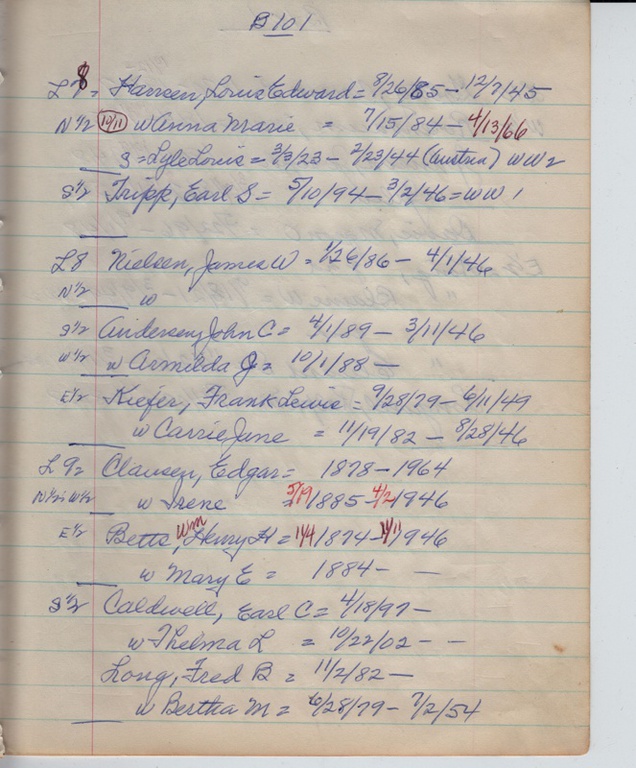 B 101
L 7 8 = Hansen, Louis Edward = 8/26/85 - 12/7/45
N 1/2 10/11 w Anna Marie = 7/15/84 - 4/13/66
S = Lyle Louis = 3/3/23 - 2/23/44 (Austria) WW2
S 1/2 Tripp, Earl S = 5/10/94 - 3/2/46 = WW 1
L 8 Nielsen, James W = 1/26/86 - 4/1/46
N 1/2 w
S 1/2 Andersen, John C = 4/1/89 - 3/11/46
W 1/2 w Armilda J = 10/1/88 -
E 1/2 Kiefer, Frank Lewis = 9/28/79 - 6/11/49
w Carrie June = 11/19/82 - 8/28/46
L 9 = Clausen, Edgar = 1878 - 1964
N 1/2 = W 1/2 w Irene = 5/19 1885 - 4/2 1946
E 1/2 Betts, Wm Henry H = 11/4 1874 - 1946
w Mary E = 1884 - -
S 1/2 Caldwell, Earl C = 4/18/97 -
w Thelma L = 10/22/02 - -
Long, Fred B = 11/2/82 -
w Bertha M = 6/28/79 - 7/2/54